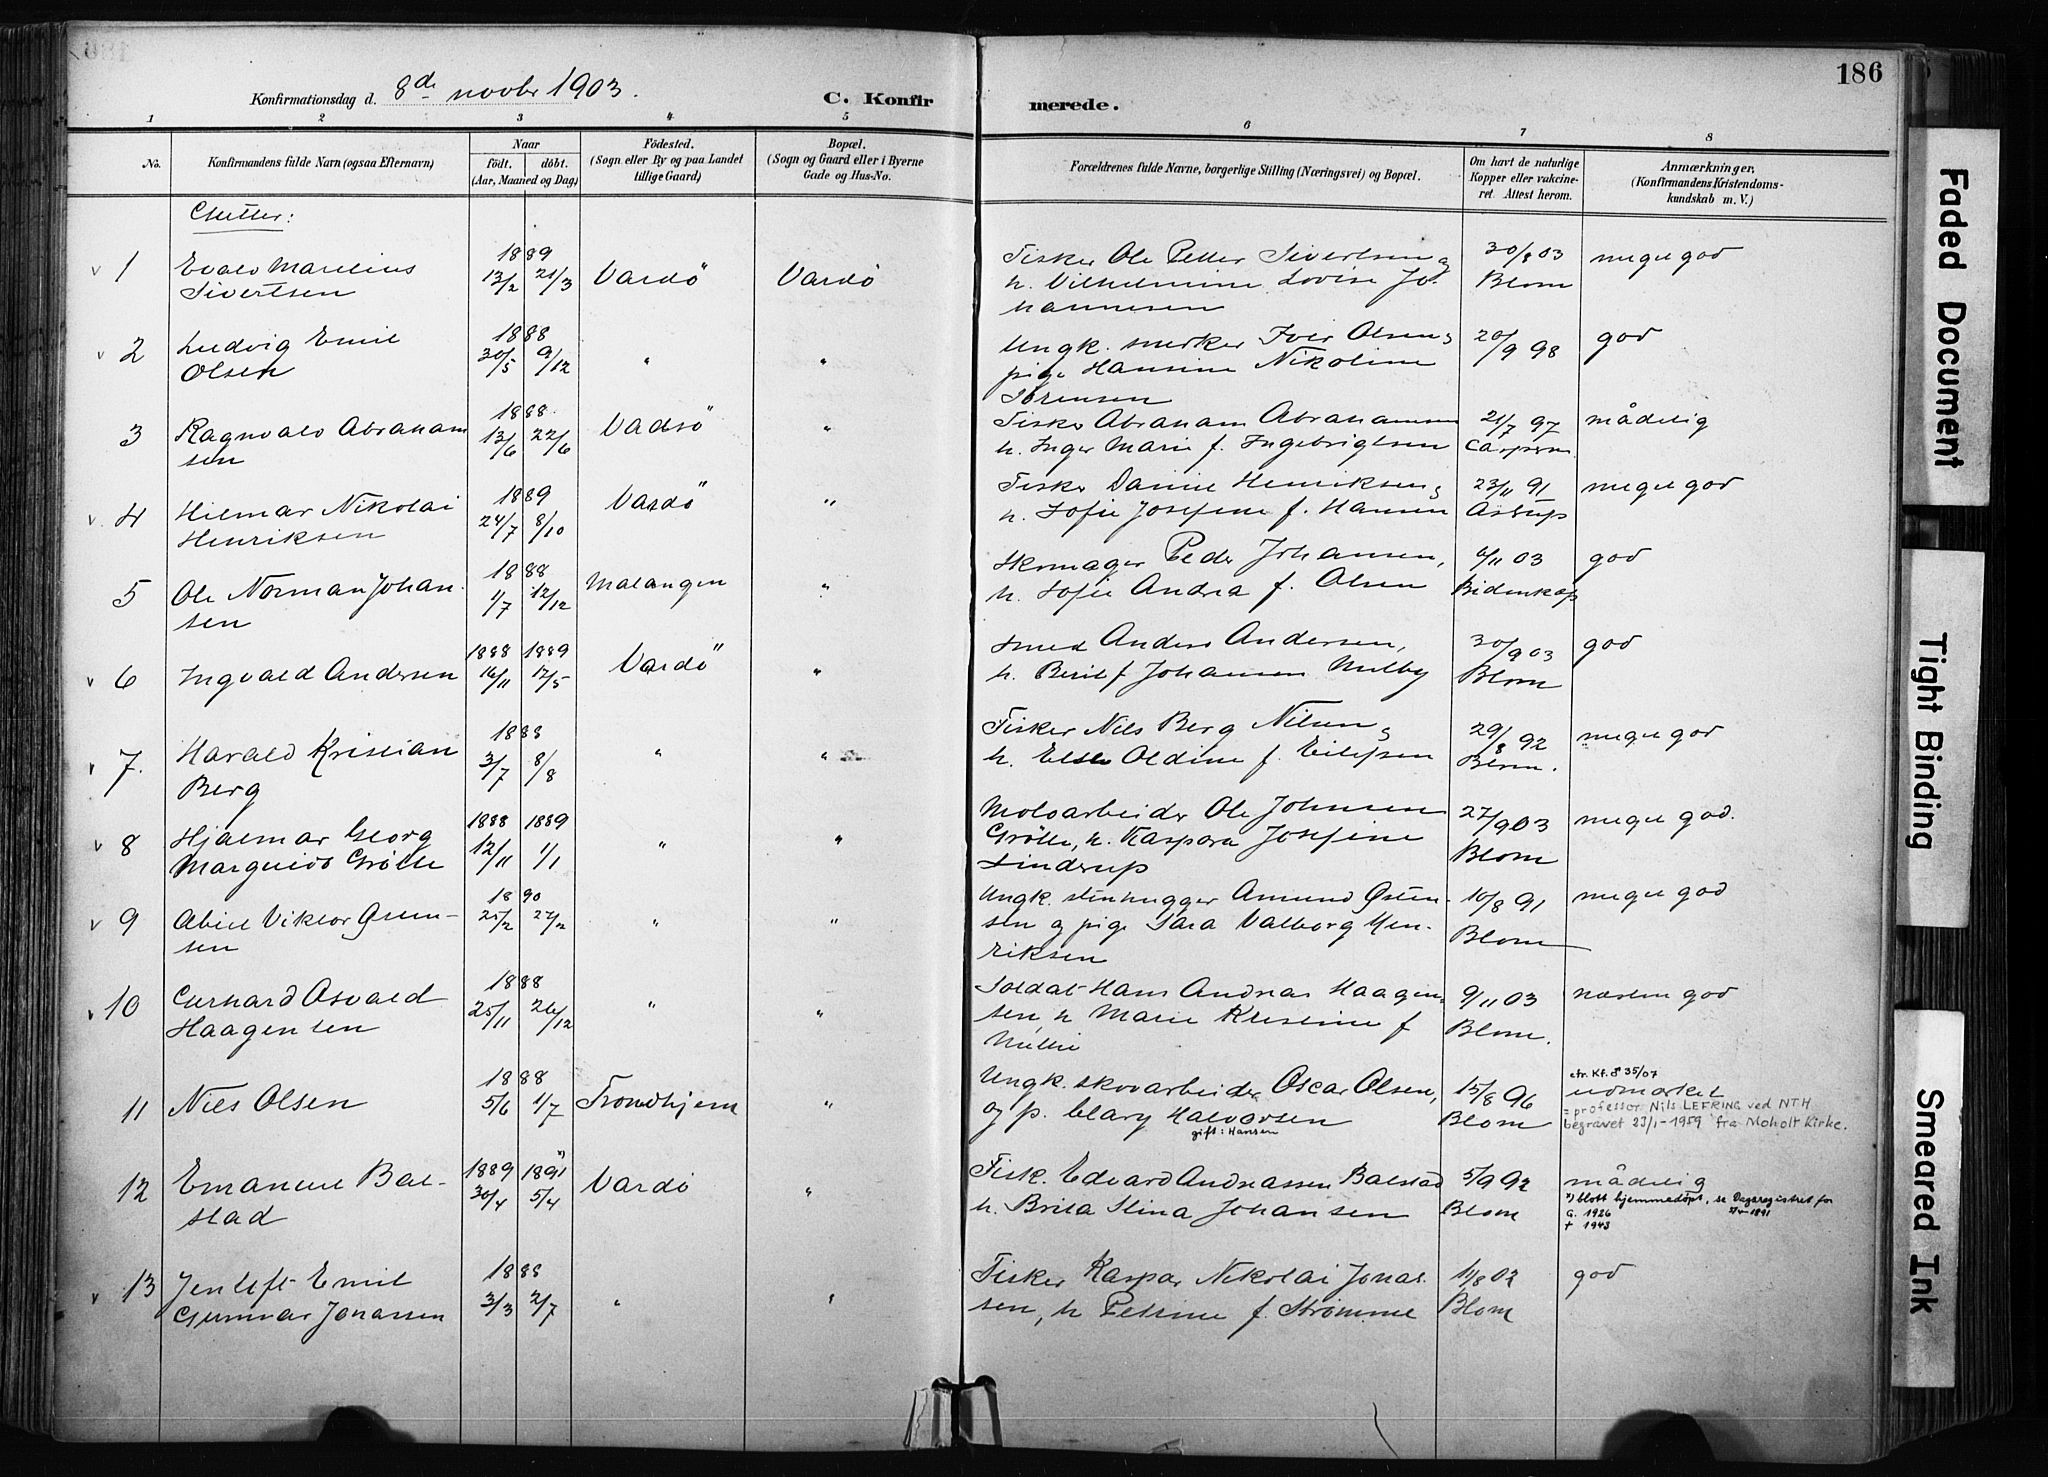 186
Konfirmationsdag d. 8de novbr 1903.
C. Konfir
merede.
1 2 3 4 5 6 7 8
No.
Konfirmandens fulde Navn (ogsaa Efternavn)
Naar
født. døbt.
(Aar, Maaned og Dag)
Fødested.
(Sogn eller By og paa Landet
tillige Gaard)
Bopæl.
(Sogn og Gaard eller i Byerne
Gade og Hus-No.
Forældrenes fulde Navne, borgerlige Stilling (Næringsvei) og Bopæl.
Om havt de naturlige
Kopper eller vakcine-
ret. Attest herom.
Anmærkninger,
(Konfirmandens Kristendoms-
kundskab m. V.)
Gutter:
1 Evald Marelius
Sivertsen
1889
13/2 21/3 Vardö Vardö
Fisker Ole Petter Sivertsen og
h. Vilhelmine Lovise Jo-
hannesen
30/8 03
Blom
meget god
2 Ludvig Emil
Olsen
1888
30/5 9/12 " "
Ungk. snerker Iver Olsen og
pige Hansine Nikoline
Sörensen
20/9 98
god
3 Ragnvald Abraham
sen
1888
13/6 22/6 Vadsö "
Fisker Abraham Abrahamsen
h. Inger Marie f. Ingebrigtsen
21/7 97
Caspersen
mådelig
4 Hilmar Nikolai
Henriksen
1889
24/7 8/10 Vardö "
Fisker Daniel Henriksen og
h. Sofie Josefine f. Hansen
23/11 91
Astrup
meget god
5 Ole Norman Johan-
sen
1888
1/7 12/12 Malangen "
Skomager Peder Johansen,
h. Sofie Andrea f. Olsen
6/11 03
Bidenkap
god
6 Ingvald Andersen
1888 1889
16/11 17/5 Vardö "
Smed Anders Andersen,
h. Berit f Johansen Melby
30/9 03
Blom
god
7. Harald Kristian
Berg
1888
3/7 8/8 " "
Fisker Nils Berg Nilsen og
h. Else Oldine f. Eilefsen
29/8 92
Blom.
meget god
8 Hjalmar Georg
Marquids Grötte
1888 1889
12/11 1/1 " "
Moloarbeider Ole Johnsen
Grötte, h. Kaspara Josefine
Linderup
27/9 03
Blom
meget god.
9 Albert Viktor Østen-
sen
1890
25/2 27/2 " "
Ungk. stenhugger Amund Østen-
sen og pige Sara Valborg Hen-
riksen
10/8 91
Blom
meget god
10 Gerhard Osvald
Haagensen
1888
25/11 26/12 " "
Soldat Hans Andreas Haagen-
sen, h Marie Kristine f
9/11 03
Blom.
næsten god
11 Nils Olsen
1888
5/6 1/7 Trondhjem "
Ungk. skovarbeider Oscar Olsen,
og p. Clary Halvorsen
gift: Hansen
15/8 96
Blom
cfr. Kf. 35/07
udmærket
= professor Nils LEFRING ved NTH
begravet 23/1-1959 fra Moholt Kirke.
12 Emanuel Bal-
stad
1889 1891 *)
30/4 5/4 Vardö "
Fisk. Edvard Andreassen Balstad
h. Brita Stina Johansen
5/9 92
Blom
mådelig
*) blott hjemmedøpt, se Dagsregistret for
5/4-1891
G. 1926
† 1943
13 Jentoft Emil
Gunnar Jonassen
1888
3/3 2/7 " "
Fisker Kaspar Nikolai Jonas-
sen, h Petrine f. Strömme
11/8 02
Blom
god
Faded Document
Tight Binding
Smeared Ink